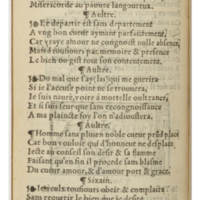 Misericorde au pauure langoureux.
¶ Aultre.
Et departir est sans departement
A vng bon cueur aymant parfaitement,
Car vray amour ne congnoist nulle absence,
Mais a tousiours par memoire & presence
Le bien ou gist tout son contentement.
¶ Aultre.
Du mal que i'ay las qui me guerira
Si le secours point ne se trouuera,
Ie suis nauré, voire à mortelle oultrance,
Et si suis seur que sans recongnoissance
A ma plaincte foy l'on n'adioustera.
¶ Aultre.
Homme sans pleurs noble cueur
Car bon vouloir qui d'honneur ne desplaist
Iecte au conseil son desir & sa flamme
Faisant qu'en fin il procede sans blasme
Du cueur amour, & d'amour port & grace.
¶ Sixain.
Ie veulx tousiours obeir & complaire
Sans